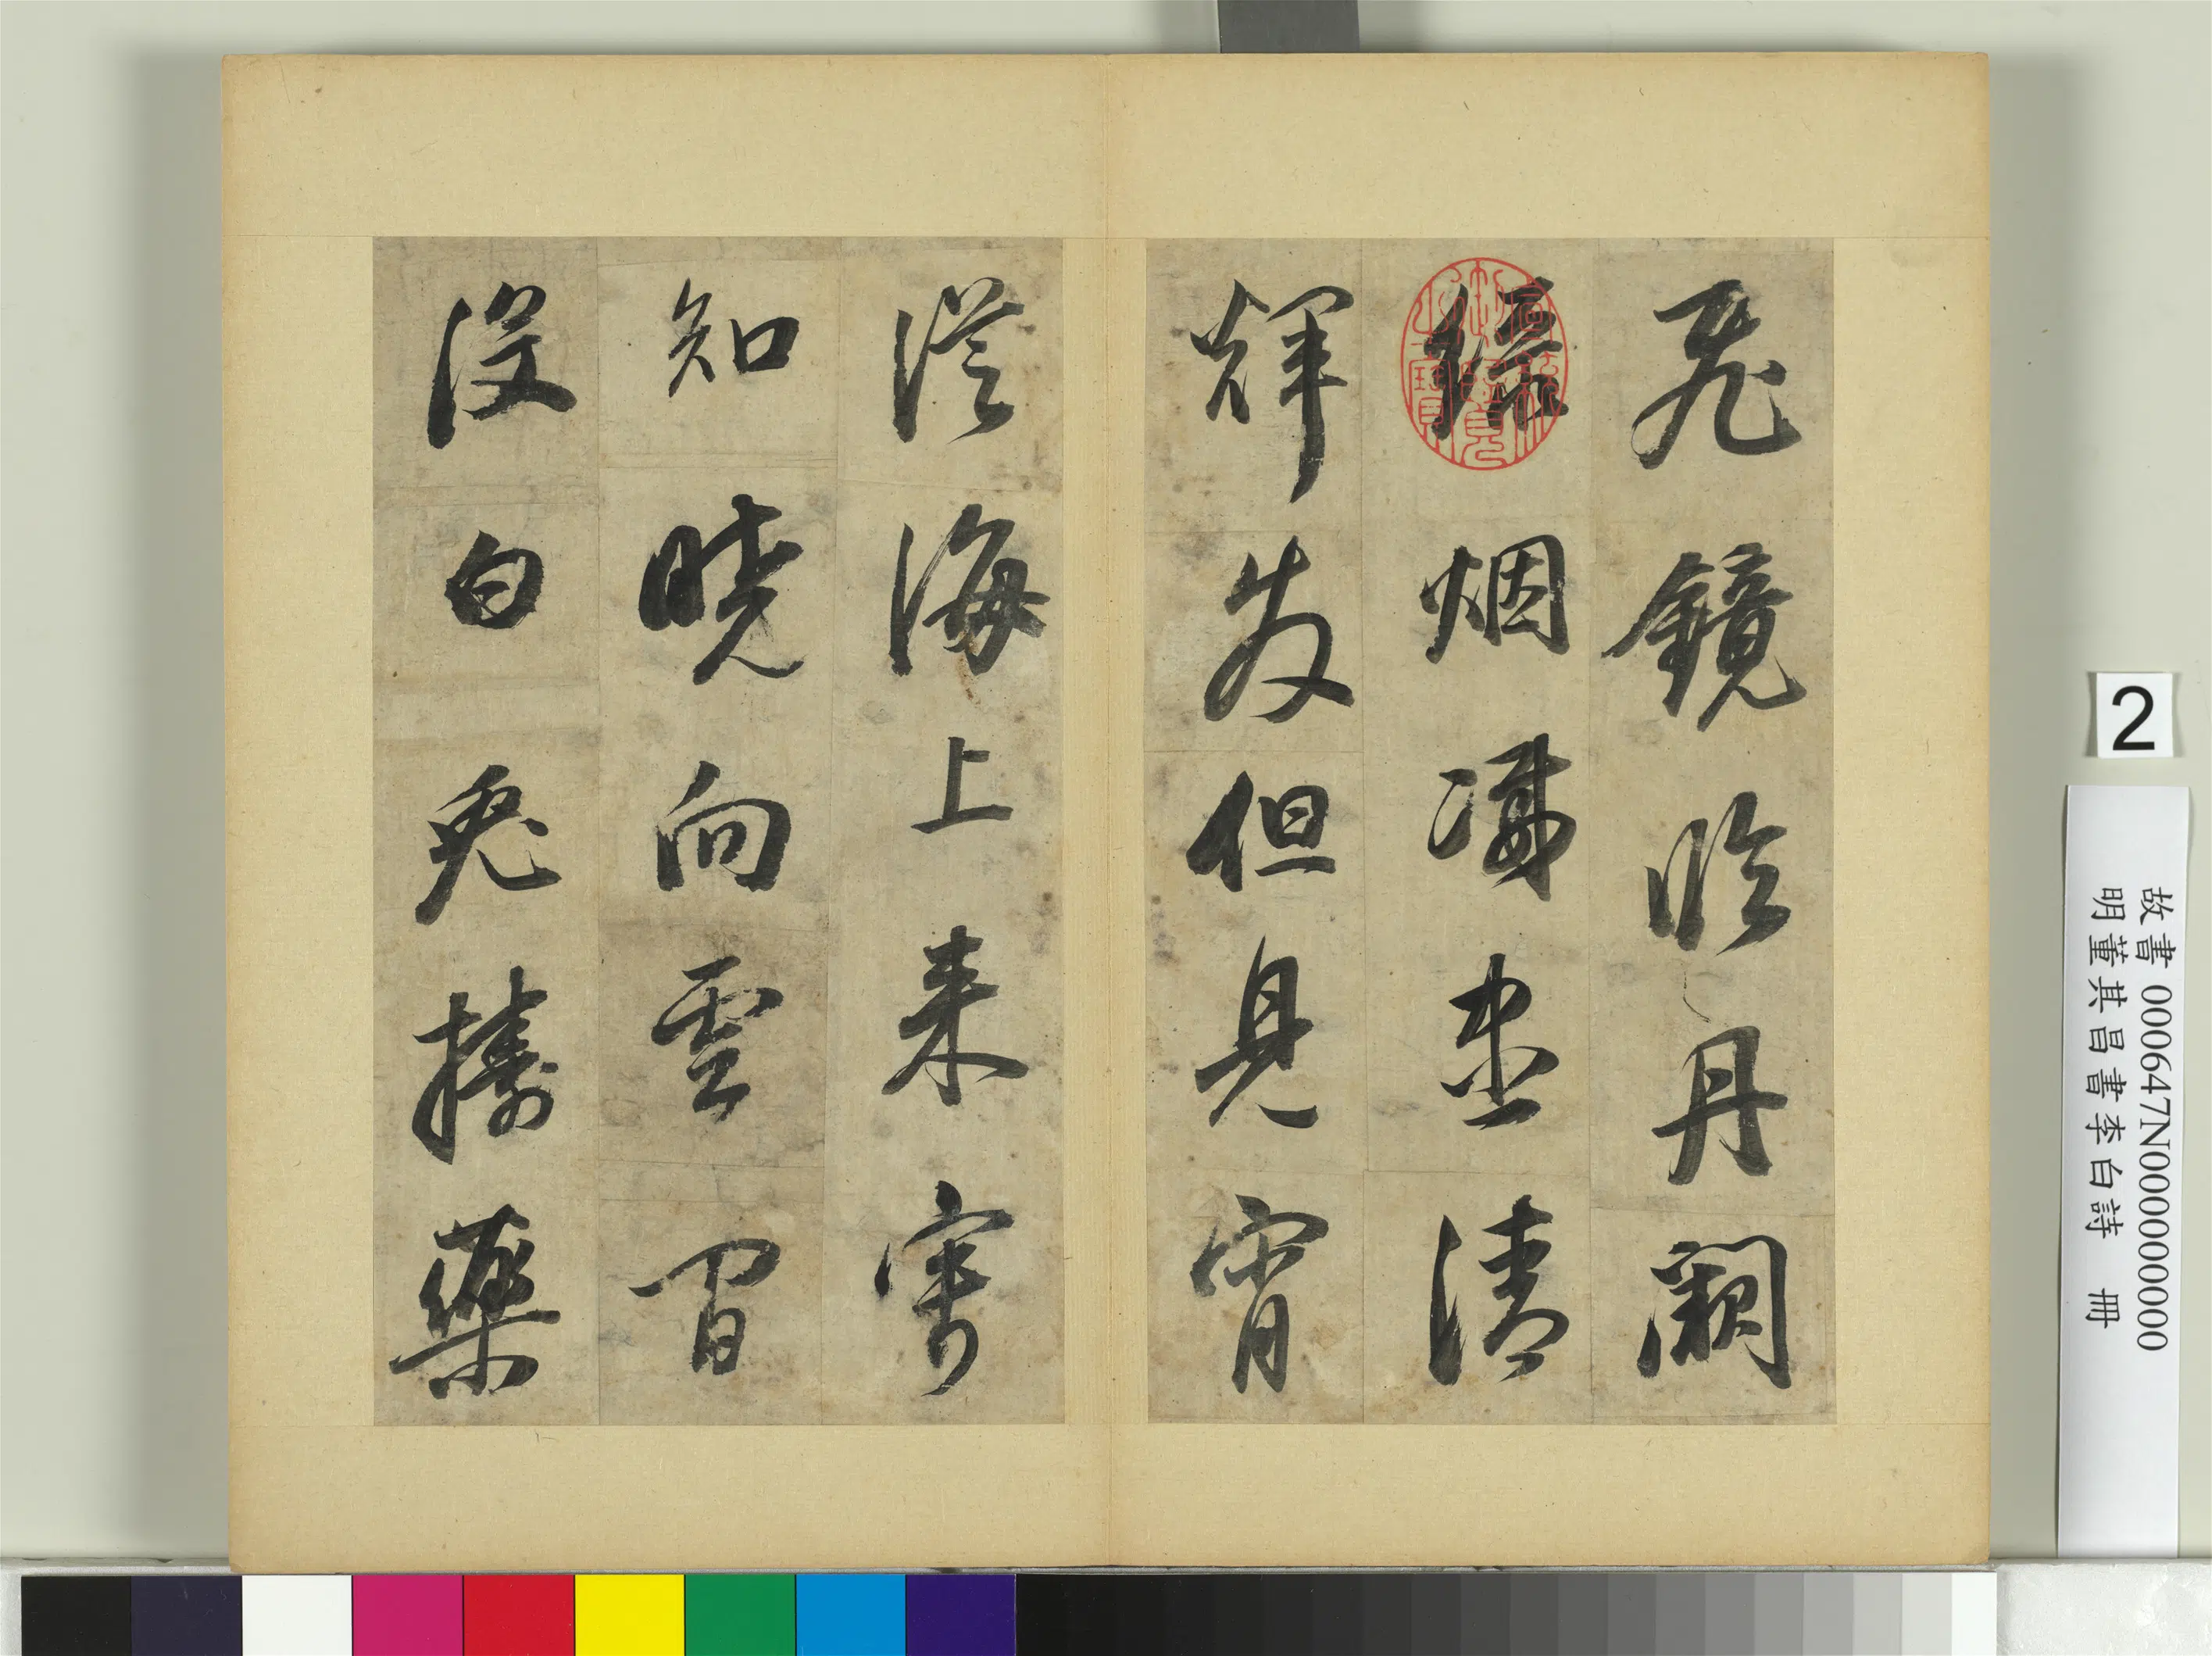 飛鏡臨丹闕
綠烟滅盡清
輝發但見宵
從海上来寧
知曉向雲間
沒白兔擣藥
御覽之寶
2
故書 000647N000000000
明董其昌書李白詩 冊